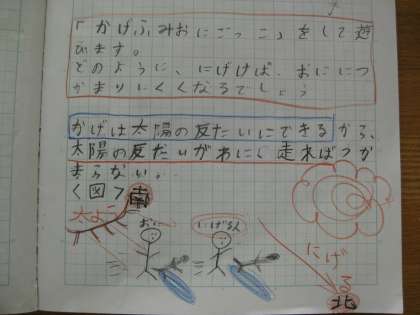 「かげふみおにごっこ」をして遊
びます。
どのように、にげけば、おににつ
かまりにくくなるでしょう
かげは太陽の反たいにできるから、
太陽の反たいがわにに走ればつか
まらない。
<図>
南
太よう
おに
にげる人
にげる
北